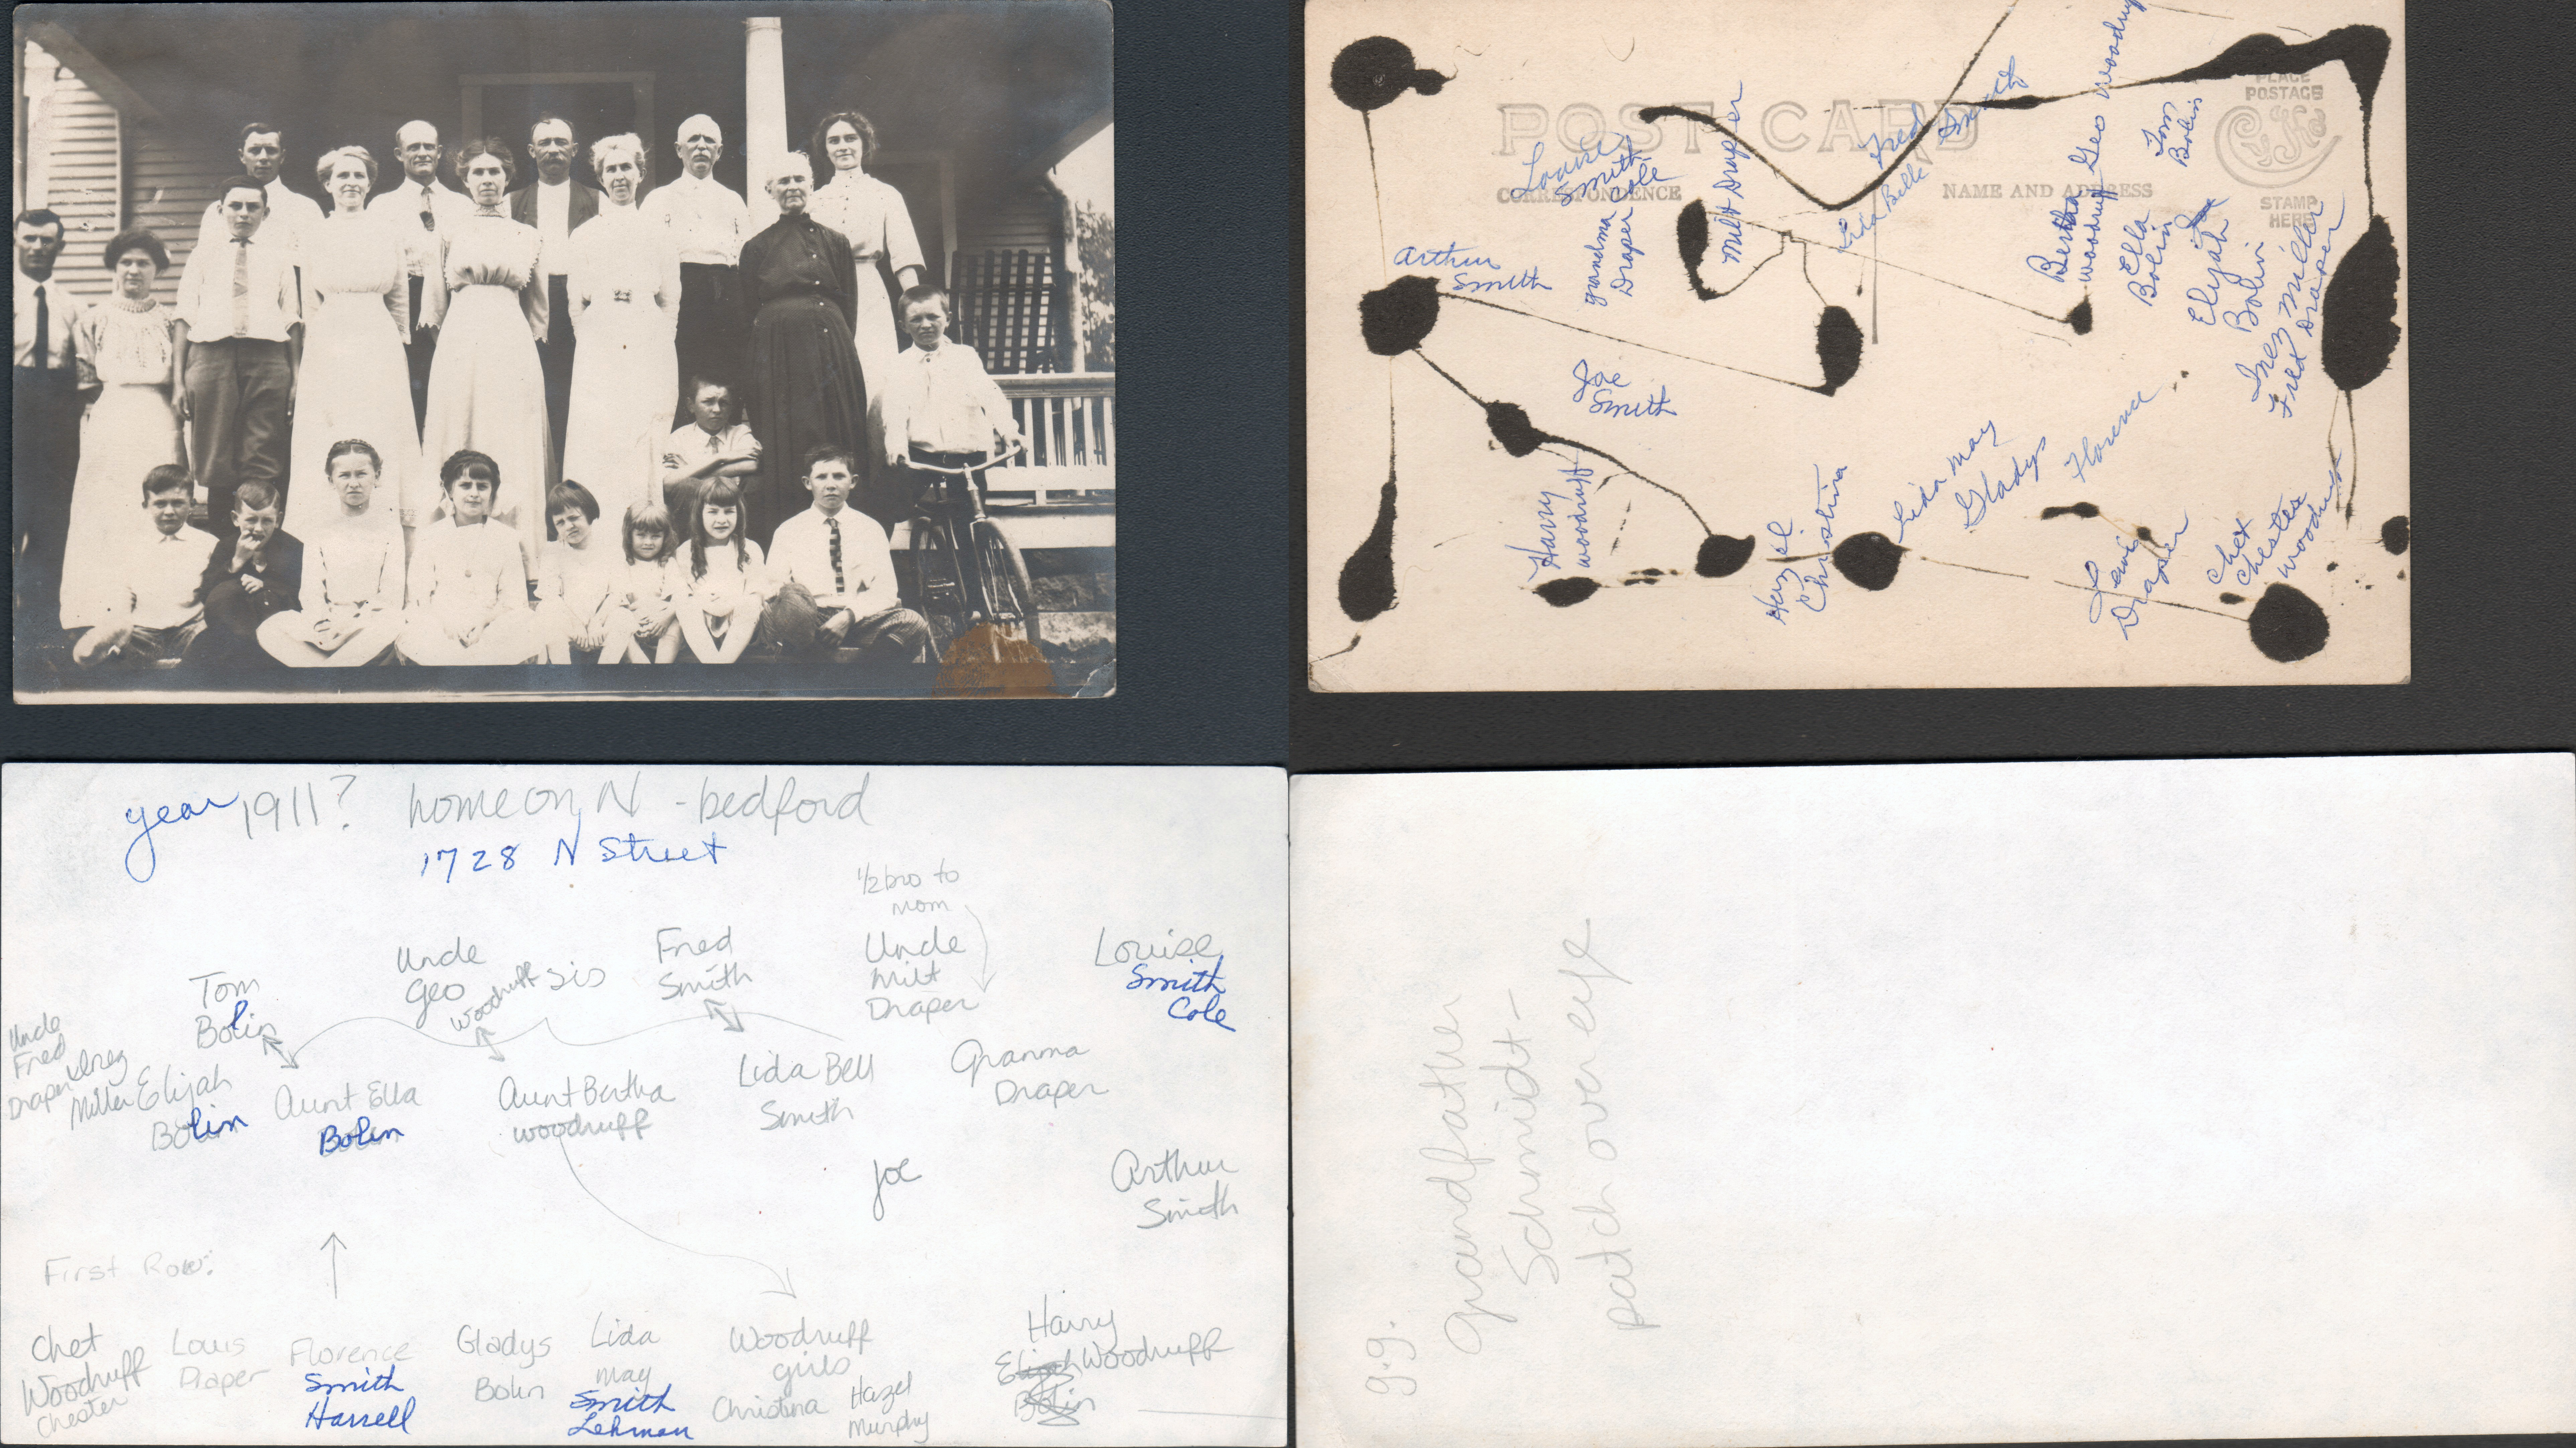 POST CARD
CORRESPONDENCE
NAME AND ADDRESS
PLACE
POSTAGE
STAMP
HERE
Louise
Smith
Cole
grandma
Draper
Milt Draper
Fred Smith
Lida Belle
Bertha
woodruff
Geo woodruff
Tom
Bolin
Ella
Bolin
Elijah
Bolin
Inez Miller
Fred Draper
Arthur
Smith
Joe
Smith
Harry
woodruff
Hazel
Christina
Lida May
Gladys
Florence
Draper
Chet
Chester
Woodruff
year 1911? home on N - bedford
1728 N Street
1/2 bro to
mom
Uncle
Geo
Woodruff
sis
Fred
Smith
Uncle
Milt
Draper
Louise
Smith
Cole
Tom
Bolin
Uncle
Fred
Draper
Inez
Miller
Elijah
Bolin
Aunt Ella
Bolin
Aunt Bertha
woodruff
Lida Bell
Smith
Granma
Draper
Joe
Arthur
Smith
First Row:
Chet
Woodruff
Chester
Louis
Draper
Florence
Smith
Harrell
Gladys
Bolin
Lida
may
Smith
Lehman
Woodruff
girls
Christina
Hazel
Murphy
Harry
Woodruff
Elijah
Bolin
g.g.
grandfather
Schmidt -
patch over eye